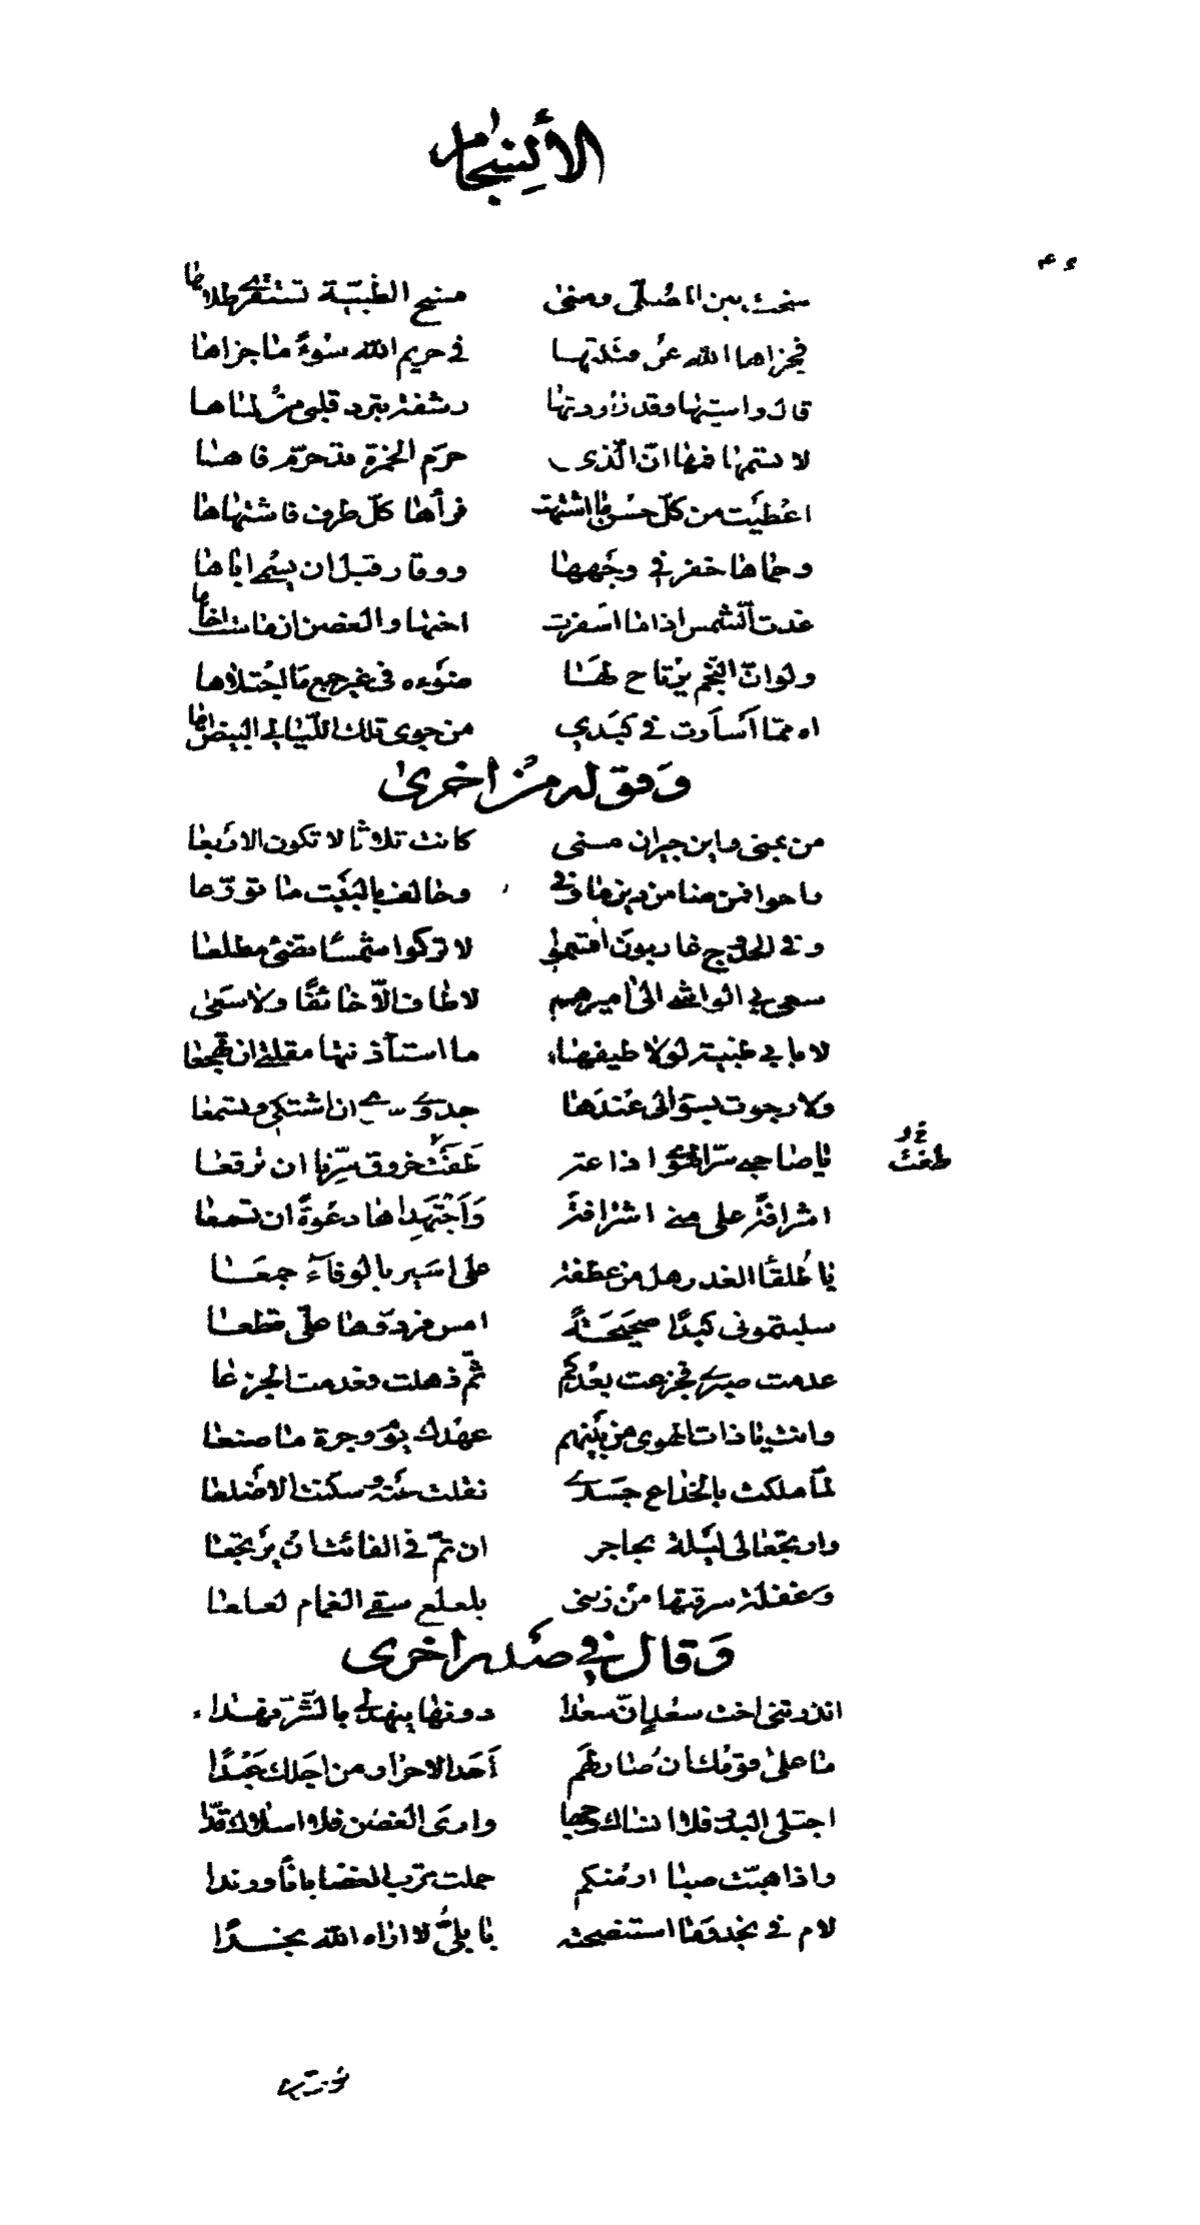 الانسجام
سنحت بين المصلى ومنى مسنح الظبية تستقرى طلاها
فجزاها الله عن فتكتها في حريم الله سوءً ما جزاها
قال واشيها وقد راودتها رشفة تبرد قلبي من لماها
لا تسمها فمها ان الذي حرم الخمرة قد حرم فاها
اعطيت من كل حسن ما اشتهت فرآها كل طرف فاشتهاها
وحماها خفر في وجهها ووقار قبل ان يسمى اباها
غدت الشمس اذا ما اسفرت اختها والغصن ان ماست اخاها
ولو ان النجم يرتاح لها ضوءه في غير جمع ما اجتلاها
اه مما أسأرت في كبدي من جوى تلك الليالي البيض اها
وقوله من اخرى
من بمنى واين جيران منى كانت ثلاثا لا تكون الاربعا
راحوا فمن ضامن دين ما وفى وحالف بالبيت ما تورعا
وفي الحدوج غاربون اقسموا لا تركوا شمسًا تضئ مطلعا
سعى بي الواشى الى اميرهم لا طاف الّا خائفًا ولا سعى
لا مابي ظبية لولا طيفها ما استأذنتها مقلتي ان تهجعا
ولا رجوت بسؤالى عندها جدوى سوى ان اشتكي وتسمعا
يا صاحبي سرّ الهوى اذا عتر خروق سرنا ان ترقعا
اشرافةً على منى اشرافة واجتهداها دعوةً ان تسمعا
يا طلقاء الغدر هل من عطفة على اسير بالوفاء جمعا
سلبتموني كبدًا صحيحة امس فردوها عليّ قطعا
عدمت صبري فجزعت بعدكم ثمّ ذهلت فعدمت الجزعا
وانت يا ذات الهوى من بينهم عهدك يوم وجرة ما صنعا
لمّا ملكت بالخداع جسدي نقلت عنه وسكنت الاضلعا
وارتجعا لى ليلة بحاجر ان تمّ في الفائت ان يرتجعا
وغفلة سرقتها من زمني بلعلع سقى الغمام لعلعا
وقال في صدر اخرى
انذرتني اخت سعد ان سعدا دونها ينهد لي بالشر نهدا
ما على قومك ان صار لهم أحد الاحرار من اجلك عبدًا
اجتلى البدر فلا انساك وجها وارى الغصن فلا اسلاك قدا
واذا هبت صبا ارضكم حملت ترب الغضا بانًا ورندا
لام في نجد وما استنصحته بابلي لا اراه الله نجدًا